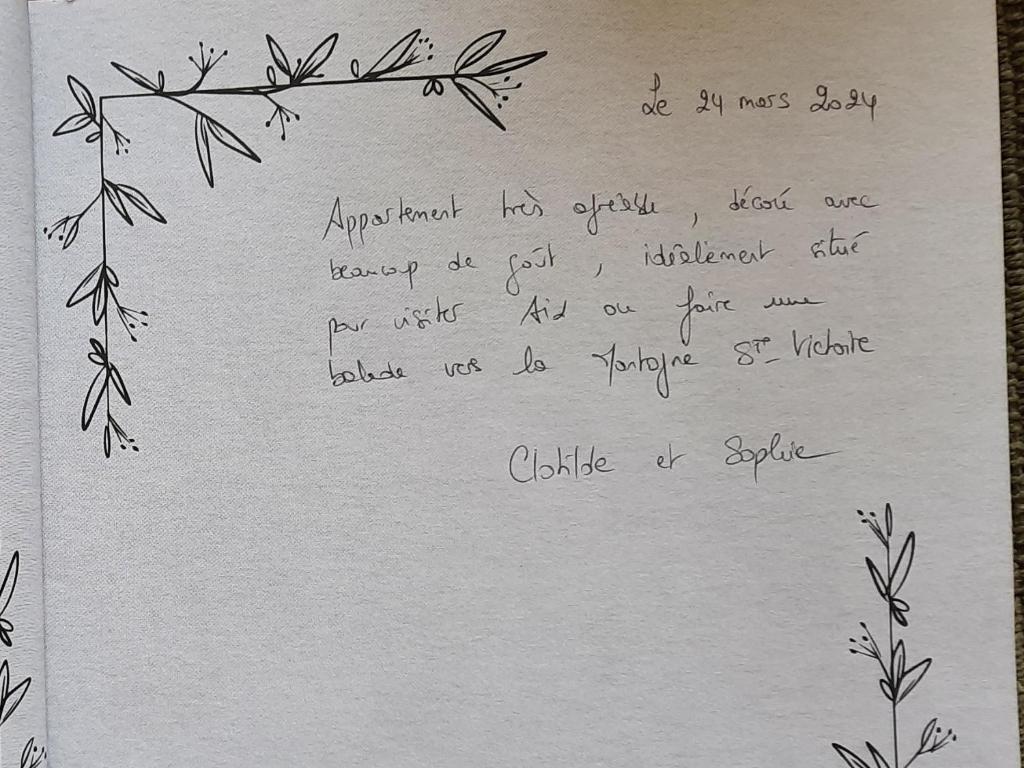 Le 24 mars 2024
Appartement très agréable, décoré avec
beaucoup de goût, idéalement situé
pour visiter Aix ou faire une
balade vers la Montagne Ste-Victoire
Clotilde et Sophie